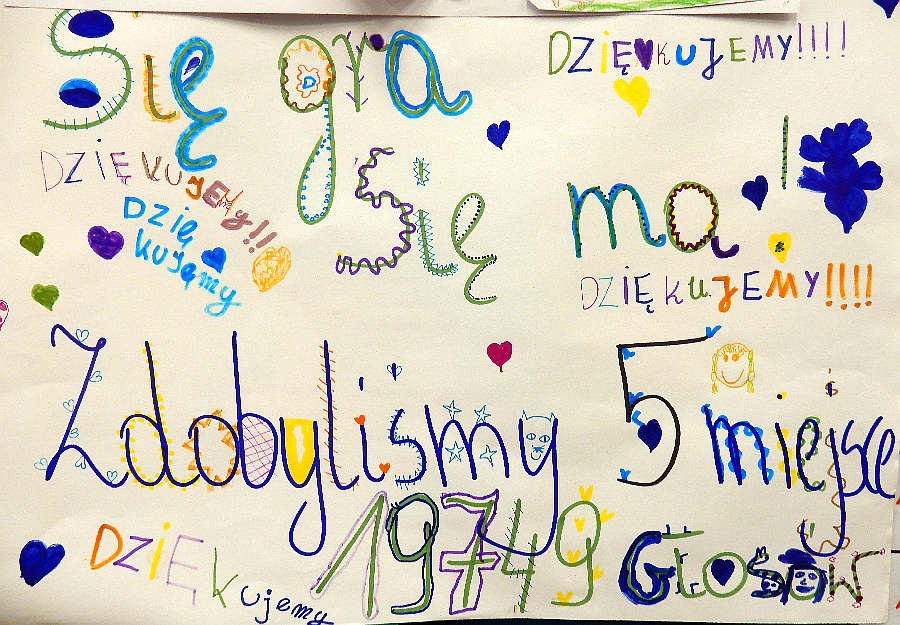 Się gra
DZIĘKUJEMY!!!!
DZIĘKUJEMY!!
Dzię
kujęmy
Się ma!
DZIĘKUJEMY!!!!
Zdobyliśmy 5 miejsce
19749 Głosów
DZIĘKujemy